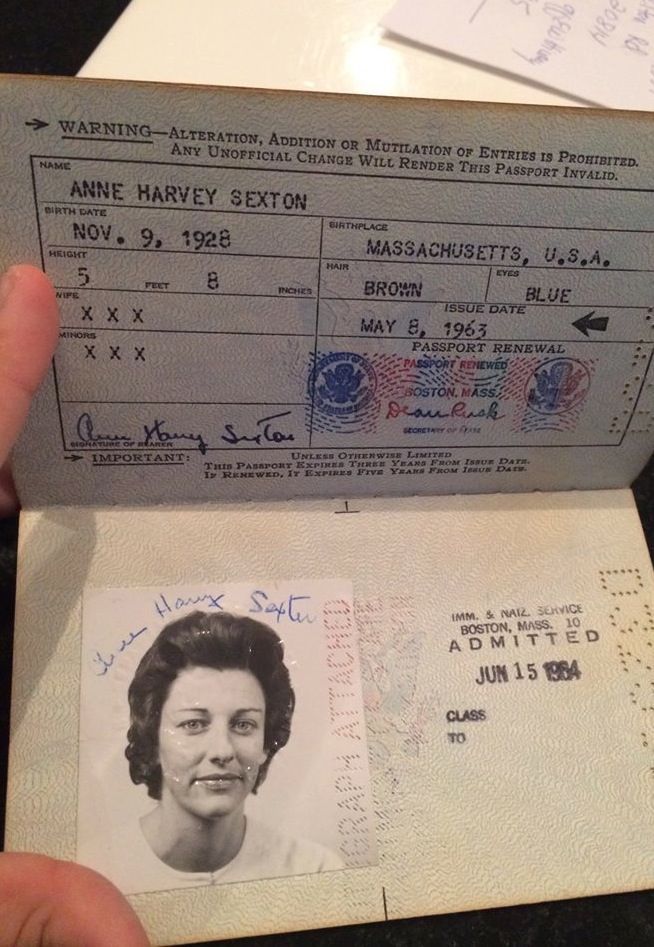 WARNING—ALTERATION, ADDITION OR MUTILATION OF ENTRIES IS PROHIBITED.
ANY UNOFFICIAL CHANGE WILL RENDER THIS PASSPORT INVALID.
NAME
ANNE HARVEY SEXTON
BIRTH DATE
NOV. 9, 1928
BIRTHPLACE
MASSACHUSETTS, U.S.A.
HEIGHT
5 FEET 8 INCHES
HAIR
BROWN
EYES
BLUE
WIFE
X X X
ISSUE DATE
MAY 8, 1963
MINORS
X X X
PASSPORT RENEWAL
PASSPORT RENEWED
BOSTON, MASS.
Dean Rusk
SECRETARY OF STATE
Anne Harvey Sexton
SIGNATURE OF BEARER
IMPORTANT: UNLESS OTHERWISE LIMITED
THIS PASSPORT EXPIRES THREE YEARS FROM ISSUE DATE.
IF RENEWED, IT EXPIRES FIVE YEARS FROM ISSUE DATE.
Anne Harvey Sexton
GRAPH ATTACHED
IMM. & NATZ. SERVICE
BOSTON, MASS. 10
ADMITTED
JUN 15 1964
CLASS
TO